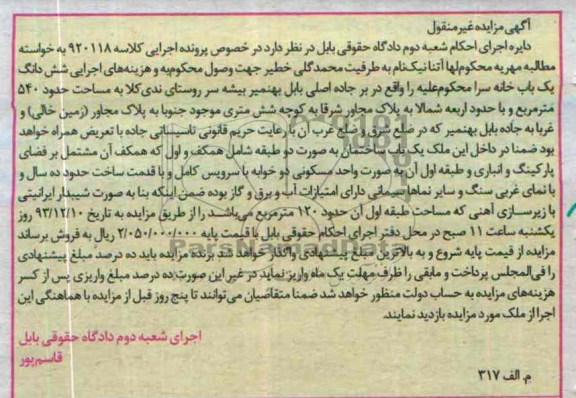 آگهی مزایده غیرمنقول
دایره اجرای احکام شعبه دوم دادگاه حقوقی بابل در نظر دارد در خصوص پرونده اجرایی کلاسه ۹۲۰۱۱۸ به خواسته
مطالبه مهریه محکوم‌لها آتنا نیک‌نام به طرفیت محمدگلی خطیر جهت وصول محکوم‌به و هزینه‌های اجرایی شش دانگ
یک باب خانه سرا محکوم‌علیه را واقع در بر جاده اصلی بابل بهنمیر بیشه سر روستای ندی‌کلا به مساحت حدود ۵۴۰
مترمربع و با حدود اربعه شمالا به پلاک مجاور شرقا به کوچه شش متری موجود جنوبا به پلاک مجاور (زمین خالی) و
غربا به جاده بابل بهنمیر که در ضلع شرق و ضلع غرب آن با رعایت حریم قانونی تاسیساتی جاده با تعریض همراه خواهد
بود ضمنا در داخل این ملک یک باب ساختمان به صورت دو طبقه شامل همکف و اول که همکف آن مشتمل بر فضای
پارکینگ و انباری و طبقه اول آن به صورت واحد مسکونی دو خوابه با سرویس کامل و با قدمت ساخت حدود ده سال و
با نمای غربی سنگ و سایر نماها سیمانی دارای امتیازات آب و برق و گاز بوده ضمن اینکه بنا به صورت شیبدار ایرانیتی
با زیرسازی آهنی که مساحت طبقه اول آن حدود ۱۲۰ مترمربع می‌باشد را از طریق مزایده به تاریخ ۹۳/۱۲/۱۰ روز
یکشنبه ساعت ۱۱ صبح در محل دفتر اجرای احکام حقوقی بابل با قیمت پایه ۲/۰۵۰/۰۰۰/۰۰۰ ریال به فروش برساند
مزایده از قیمت پایه شروع و به بالاترین مبلغ پیشنهادی واگذار خواهد شد برنده مزایده باید ده درصد مبلغ پیشنهادی
را فی‌المجلس پرداخت و مابقی را ظرف مهلت یک ماه واریز نماید در غیر این صورت ده درصد مبلغ واریزی پس از کسر
هزینه‌های مزایده به حساب دولت منظور خواهد شد ضمنا متقاضیان می‌توانند تا پنج روز قبل از مزایده با هماهنگی این
اجرا از ملک مورد مزایده بازدید نمایند.
اجرای شعبه دوم دادگاه حقوقی بابل
قاسم‌پور
م. الف ۳۱۷
ParsNamadData